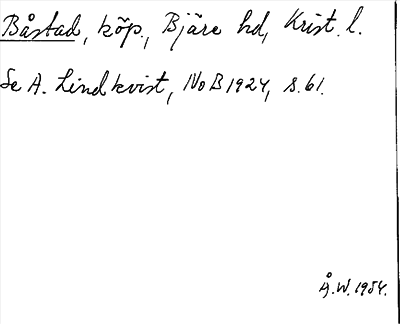 Båstad, köp., Bjäre hd, Krist. l.
Se A. Lindkvist, NoB 1924, s. 61.
Å.W. 1954.